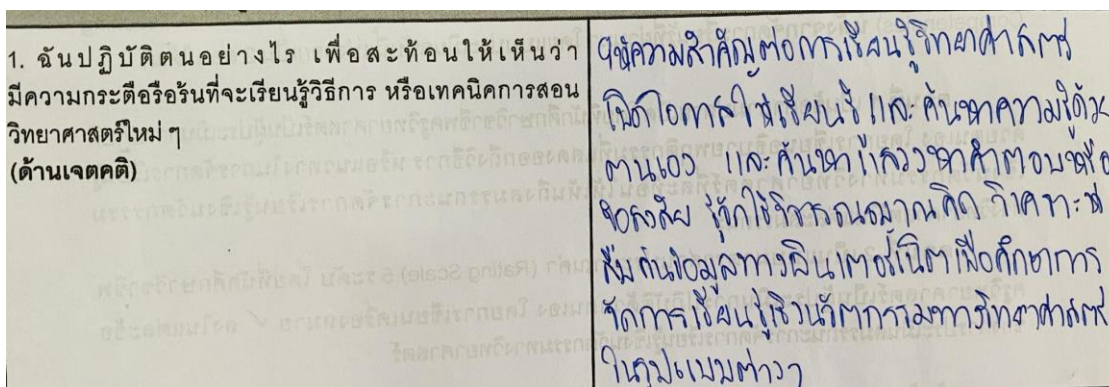 1. ฉันปฏิบัติตนอย่างไร เพื่อสะท้อนให้เห็นว่า
มีความกระตือรือร้นที่จะเรียนรู้วิธีการ หรือเทคนิคการสอน
วิทยาศาสตร์ใหม่ ๆ
(ด้านเจตคติ)
ให้ความสำคัญต่อการเรียนรู้วิทยาศาสตร์
เปิดโอกาสให้เรียนรู้และค้นหาความรู้ด้วย
ตนเอง และค้นหา แสวงหาคำตอบหรือ
ข้อสงสัย รู้จักใช้วิจารณญาณคิดวิเคราะห์
สืบค้นข้อมูลทางอินเตอร์เน็ตเพื่อศึกษาการ
จัดการเรียนรู้เชิงนวัตกรรมทางวิทยาศาสตร์
ในรูปแบบต่างๆ